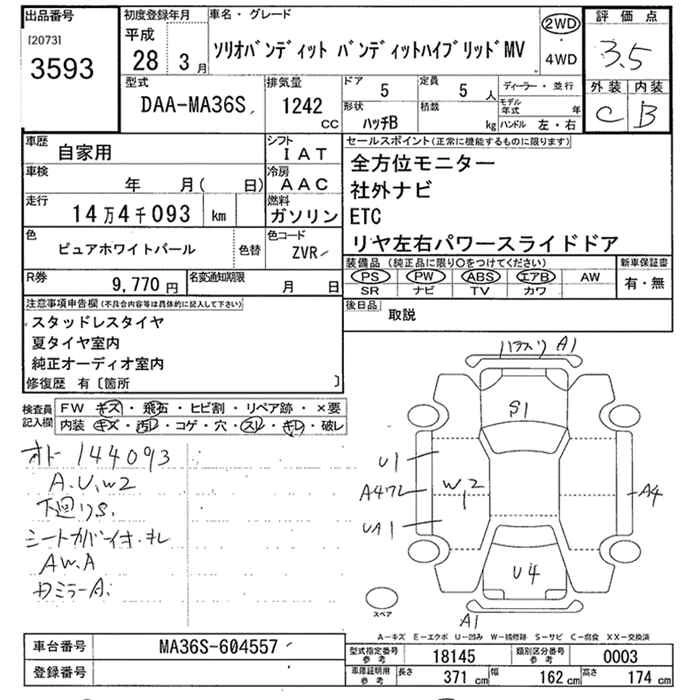 出品番号
[2073]
3593
初度登録年月
平成
28 3月
車名・グレード
ソリオバンディット バンディットハイブリッドMV
2WD
・
4WD
評価点
3.5
外装 内装
C B
型式
DAA-MA36S
排気量
1242
CC
ドア
5
定員
5 人
形状
ハッチB
積載
kg
ディーラー・並行
モデル年式 年
ハンドル 左・右
車歴
自家用
シフト
IAT
車検
年 月( 日)
冷房
AAC
走行
14万4千093 km
燃料
ガソリン
色
ピュアホワイトパール
色替
色コード
ZVR
R券
9,770円
名変通知期限
月 日
セールスポイント(正常に機能するものに限ります)
全方位モニター
社外ナビ
ETC
リヤ左右パワースライドドア
装備品(純正品に限り○をつけてください)
PS PW ABS エアB AW
SR ナビ TV カワ
新車保証書
有・無
後日品
取説
注意事項申告欄(不具合内容等は具体的に記入して下さい)
スタッドレスタイヤ
夏タイヤ室内
純正オーディオ室内
修復歴 有〔箇所 〕
検査員
記入欄
FW キズ・飛石・ヒビ割・リペア跡・×要
内装 キズ・汚レ・コゲ・穴・スレ・キレ・破レ
オドー 144093
A.U.W2
下廻りS.
シートカバーイオ.キレ
AW.A
Rミラー A.
A1
S1
U1
W2
1
A4
UA1
U4
A4
A1
スペア
A-キズ E-エクボ U-凹み W-補修跡 S-サビ C-腐食 XX-交換済
車台番号
MA36S-604557
登録番号
型式指定番号
参考
18145
類別区分番号
参考
0003
車庫証明用
参考
長さ
371 cm
幅
162 cm
高さ
174 cm